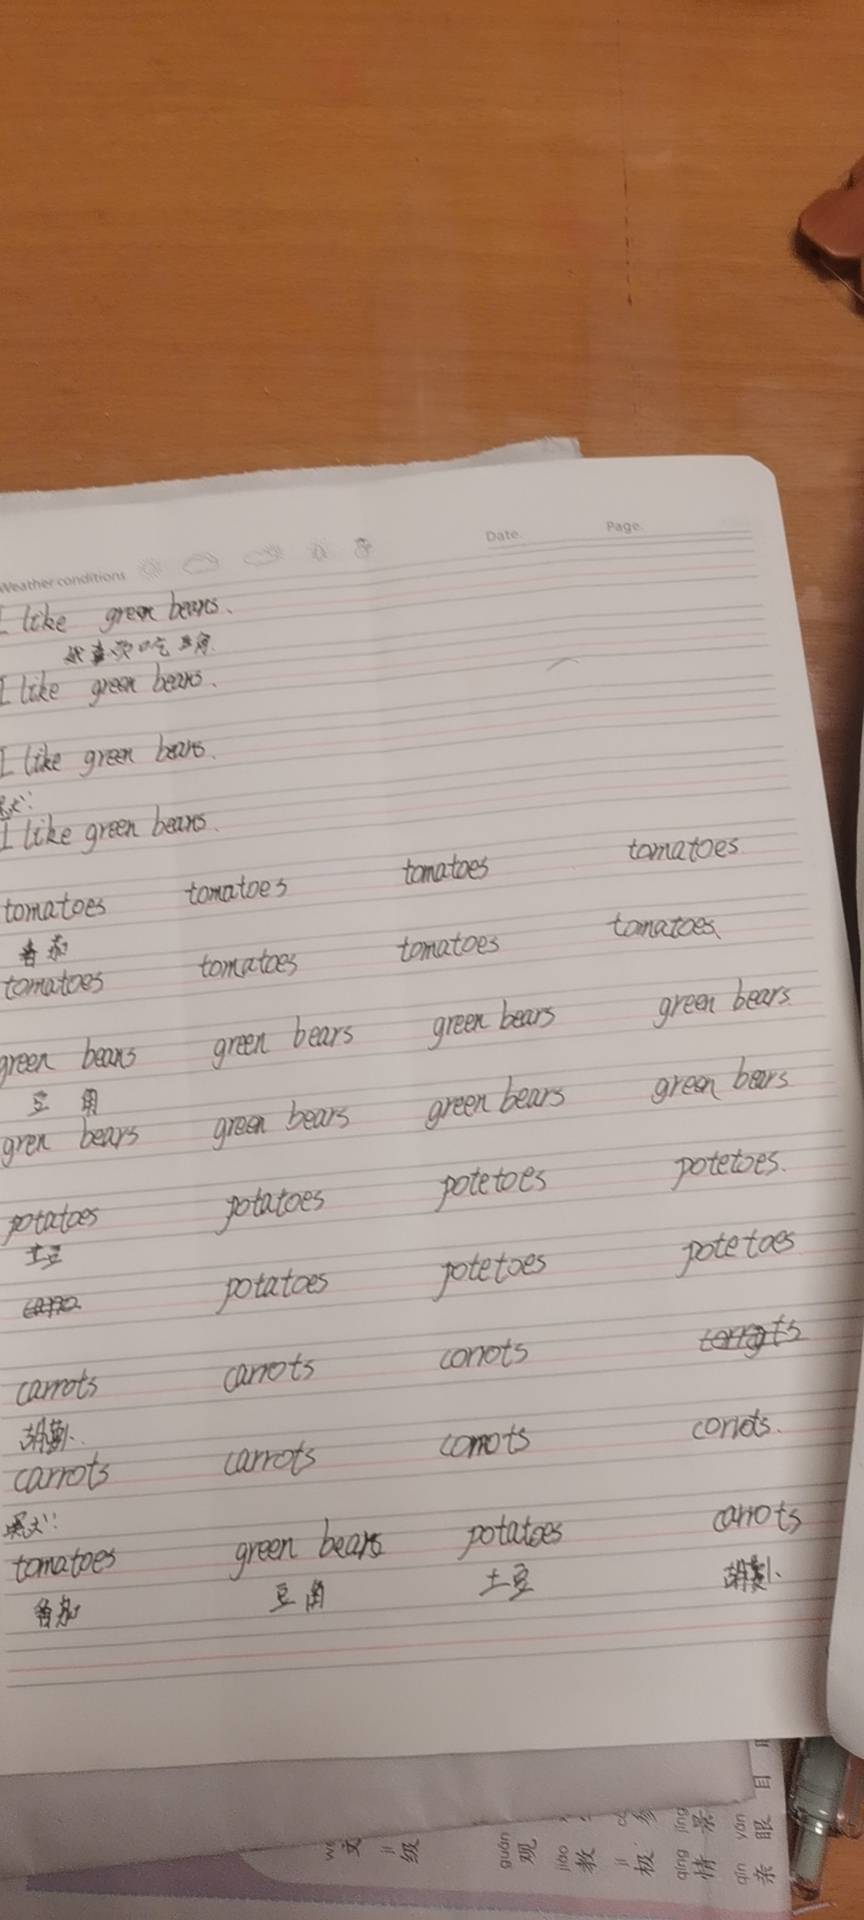 Weather conditions Date Page
I like green beans.
我喜欢吃豆角.
I like green beans.
I like green beans.
默文:
I like green beans.
tomatoes tomatoes tomatoes tomatoes
番茄
tomatoes tomatoes tomatoes tomatoes
green beans green bears green bears green bears
豆角
gren bears green bears green bears green bears
potatoes potatoes potetoes potetoes.
土豆
potatoes potetoes potetoes
carrots carrots conots
胡萝卜
carrots carrots comots coriots.
默文:
tomatoes green beans potatoes carrots
番茄 豆角 土豆 胡萝卜
wén 文
jí 级
guān 观
jiào 教
jī 极
qíng jǐng 情 景
qīn yǎn 亲 眼 目